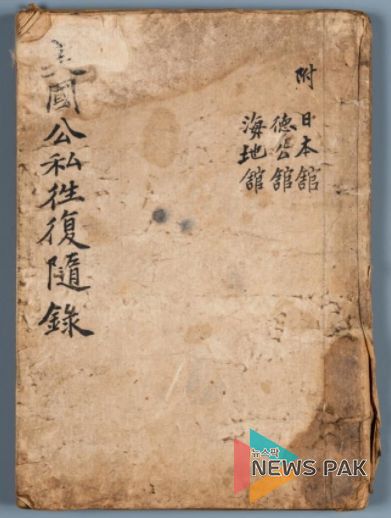 美國公私徃復隨錄
附
日本舘
德公舘
海地舘
뉴스팍
NEWS PAK